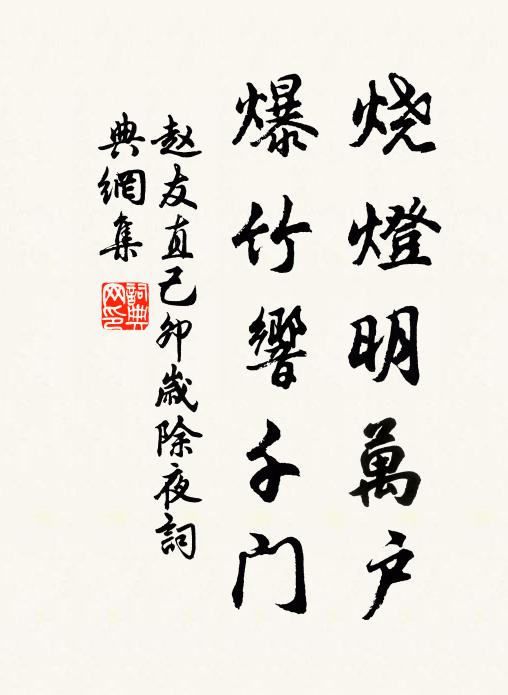 烧燈明萬户
爆竹響千门
赵友直己卯歲除夜詞
典網集
詞典網印